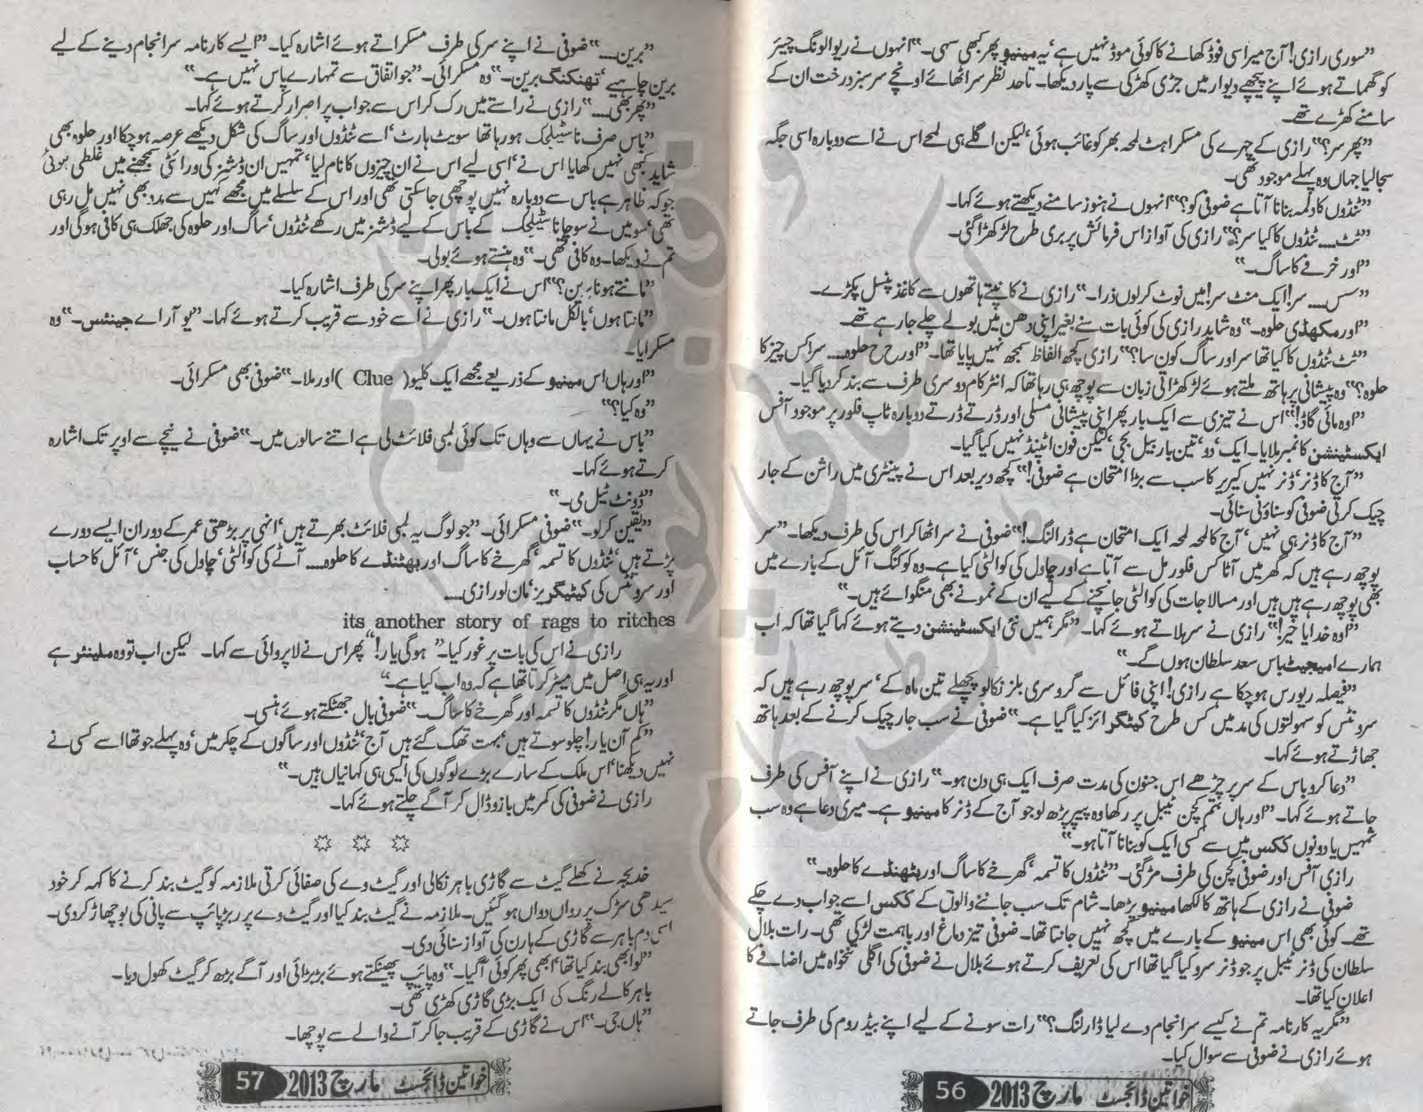 "سوری رازی! آج میرا سی فوڈ کھانے کا کوئی موڈ نہیں ہے، یہ مینیو پھر کبھی سہی۔" انہوں نے ریوالونگ چیئر
کو گھماتے ہوئے اپنے پیچھے دیوار میں جڑی کھڑکی سے پار دیکھا۔ تاحد نظر سر اٹھائے اونچے سرسبز درخت ان کے
سامنے کھڑے تھے۔
"پھر سر؟" رازی کے چہرے کی مسکراہٹ لمحہ بھر کو غائب ہوئی، لیکن اگلے ہی لمحے اس نے اسے دوبارہ اسی جگہ
سجا لیا جہاں وہ پہلے موجود تھی۔
"ٹنڈوں کا دلمہ بنانا آتا ہے ضوفی کو؟" انہوں نے ہنوز سامنے دیکھتے ہوئے کہا۔
"ٹٹ۔۔۔ ٹنڈوں کا کیا سر؟" رازی کی آواز اس فرمائش پر بری طرح لڑکھڑا گئی۔
"اور خرفے کا ساگ۔"
"سس۔۔۔ سر! ایک منٹ سر! میں نوٹ کر لوں ذرا۔" رازی نے کانپتے ہاتھوں سے کاغذ پنسل پکڑے۔
"اور مکھڈی حلوہ۔" وہ شاید رازی کی کوئی بات سنے بغیر اپنی دھن میں بولے چلے جا رہے تھے۔
"ٹٹ ٹنڈوں کا کیا تھا سر اور ساگ کون سا؟" رازی کچھ الفاظ سمجھ نہیں پایا تھا۔ "اور ح ح حلوہ۔۔۔ سر اکس چیز کا
حلوہ؟" وہ پیشانی پر ہاتھ ملتے ہوئے لڑکھڑاتی زبان سے پوچھ ہی رہا تھا کہ انٹرکام دوسری طرف سے بند کر دیا گیا۔
"اوہ مائی گاڈ!" اس نے تیزی سے ایک بار پھر اپنی پیشانی مسلی اور ڈرتے ڈرتے دوبارہ ٹاپ فلور پر موجود آفس
ایکسٹینشن کا نمبر ملایا۔ ایک، دو، تین بار بیل بجی، لیکن فون اٹینڈ نہیں کیا گیا۔
"آج کا ڈنر، ڈنر نہیں کیریر کا سب سے بڑا امتحان ہے ضوفی!" کچھ دیر بعد اس نے پینٹری میں راشن کے جار
چیک کرتی ضوفی کو سناؤنی سنائی۔
"آج کا ڈنر ہی نہیں، آج کا لمحہ لمحہ ایک امتحان ہے ڈارلنگ!" ضوفی نے سر اٹھا کر اس کی طرف دیکھا۔ "سر
پوچھ رہے ہیں کہ گھر میں آٹا کس فلور مل سے آتا ہے اور چاول کی کوالٹی کیا ہے۔ وہ کوکنگ آئل کے بارے میں
بھی پوچھ رہے ہیں ہیں اور مسالا جات کی کوالٹی جانچنے کے لیے ان کے نمونے بھی منگوائے ہیں۔"
"اوہ خدایا خیر!" رازی نے سر ہلاتے ہوئے کہا۔ "مگر ہمیں نئی ایکسٹینشن دیتے ہوئے کہا گیا تھا کہ اب
ہمارے امیجیٹ باس سعد سلطان ہوں گے۔"
"فیصلہ ریورس ہو چکا ہے رازی! اپنی فائل سے گروسری بلز نکالو پچھلے تین ماہ کے، سر پوچھ رہے ہیں کہ
سرونٹس کو سہولتوں کی مد میں کس طرح کیٹگرائز کیا گیا ہے۔" ضوفی نے سب جار چیک کرنے کے بعد ہاتھ
جھاڑتے ہوئے کہا۔
"دعا کرو باس کے سر پر چڑھے اس جنون کی مدت صرف ایک ہی دن ہو۔" رازی نے اپنے آفس کی طرف
جاتے ہوئے کہا۔ "اور ہاں تم کچن ٹیبل پر رکھا وہ پیپر پڑھ لو جو آج کے ڈنر کا مینیو ہے۔ میری دعا ہے وہ سب
تمہیں یا دونوں ککس میں سے کسی ایک کو بنانا آتا ہو۔"
رازی آفس اور ضوفی کچن کی طرف مڑ گئی۔ "ٹنڈوں کا تسمہ، گھر خے کا ساگ اور بٹھنڈے کا حلوہ۔"
ضوفی نے رازی کے ہاتھ کا لکھا مینیو پڑھا۔ شام تک سب جاننے والوں کے ککس اسے جواب دے چکے
تھے۔ کوئی بھی اس مینیو کے بارے میں کچھ نہیں جانتا تھا۔ ضوفی تیز دماغ اور باہمت لڑکی تھی۔ رات بلال
سلطان کی ڈنر ٹیبل پر جو ڈنر سرو کیا گیا تھا اس کی تعریف کرتے ہوئے بلال نے ضوفی کی اگلی تنخواہ میں اضافے کا
اعلان کیا تھا۔
"مگر یہ کارنامہ تم نے کیسے سرانجام دے لیا ڈارلنگ؟" رات سونے کے لیے اپنے بیڈ روم کی طرف جاتے
ہوئے رازی نے ضوفی سے سوال کیا۔
خواتین ڈائجسٹ مارچ 2013 56
"برین۔۔۔" ضوفی نے اپنے سر کی طرف مسکراتے ہوئے اشارہ کیا۔ "ایسے کارنامہ سرانجام دینے کے لیے
برین چاہیے، تھنکنگ برین۔" وہ مسکرائی۔ "جو اتفاق سے تمہارے پاس نہیں ہے۔"
"پھر بھی۔۔۔" رازی نے راستے میں رک کر اس سے جواب پر اصرار کرتے ہوئے کہا۔
"باس صرف ناسٹیلجک ہو رہا تھا سویٹ ہارٹ، اسے ٹنڈوں اور ساگ کی شکل دیکھے عرصہ ہو چکا اور حلوہ بھی
شاید کبھی نہیں کھایا اس نے، اسی لیے اس نے ان چیزوں کا نام لیا، تمہیں ان ڈشز کی ورائٹی سمجھنے میں غلطی ہوئی
جو کہ ظاہر ہے باس سے دوبارہ نہیں پوچھی جا سکتی تھی اور اس کے سلسلے میں مجھے کہیں سے مدد بھی نہیں مل رہی
تھی، سو میں نے سوچا ناسٹیلجک کے باس کے لیے ڈشز میں رکھے ٹنڈوں، ساگ اور حلوہ کی جھلک ہی کافی ہو گی اور
تم نے دیکھا۔ وہ کافی تھی۔" وہ ہنستے ہوئے بولی۔
"مانتے ہو نا برین؟" اس نے ایک بار پھر اپنے سر کی طرف اشارہ کیا۔
"مانتا ہوں، بالکل مانتا ہوں۔" رازی نے اسے خود سے قریب کرتے ہوئے کہا۔ "یو آر اے جینئس۔" وہ
مسکرایا۔
"اور ہاں اس مینیو کے ذریعے مجھے ایک کلیو( Clue )اور ملا۔" ضوفی بھی مسکرائی۔
"وہ کیا؟"
"باس نے یہاں سے وہاں تک کوئی لمبی فلائٹ لی ہے اتنے سالوں میں۔" ضوفی نے نیچے سے اوپر تک اشارہ
کرتے ہوئے کہا۔
"ڈونٹ ٹیل می۔"
"یقین کر لو۔" ضوفی مسکرائی۔ "جو لوگ یہ لمبی فلائٹ بھرتے ہیں، انہی پر بڑھتی عمر کے دوران ایسے دورے
پڑتے ہیں، ٹنڈوں کا تسمہ، گھر خے کا ساگ اور بھٹنڈے کا حلوہ۔۔۔ آٹے کی کوالٹی، چاول کی جنس، آئل کا حساب
اور سرونٹس کی کیٹیگریز، مان لو رازی۔۔۔
its another story of rags to ritches
رازی نے اس کی بات پر غور کیا۔ "ہو گی یار!" پھر اس نے لاپروائی سے کہا۔ لیکن اب تو وہ ملینئر ہے
اور یہ ہی اصل میں میٹر کرتا تھا ہے کہ وہ اب کیا ہے۔"
"ہاں مگر ٹنڈوں کا تسمہ اور گھر خے کا ساگ۔" ضوفی بال جھٹکتے ہوئے ہنسی۔
"کم آن یار! چلو سوتے ہیں، بہت تھک گئے ہیں آج، ٹنڈوں اور ساگوں کے چکر میں، وہ پہلے جو تھا اسے کسی نے
نہیں دیکھنا، اس ملک کے سارے بڑے لوگوں کی ایسی ہی کہانیاں ہیں۔"
رازی نے ضوفی کی کمر میں بازو ڈال کر آگے چلتے ہوئے کہا۔
☼ ☼ ☼
خدیجہ نے کھلے گیٹ سے گاڑی باہر نکالی اور گیٹ وے کی صفائی کرتی ملازمہ کو گیٹ بند کرنے کا کہہ کر خود
سیدھی سڑک پر رواں دواں ہو گئیں۔ ملازمہ نے گیٹ بند کیا اور گیٹ وے پر ربڑ پائپ سے پانی کی بوچھاڑ کر دی۔
اسی دم باہر سے گاڑی کے ہارن کی آواز سنائی دی۔
"لو ابھی بند کیا تھا، ابھی پھر کوئی آ گیا۔" وہ پائپ پھینکتے ہوئے بڑبڑائی اور آگے بڑھ کر گیٹ کھول دیا۔
باہر کالے رنگ کی ایک بڑی گاڑی کھڑی تھی۔
"ہاں جی۔" اس نے گاڑی کے قریب جا کر آنے والے سے پوچھا۔
خواتین ڈائجسٹ مارچ 2013 57